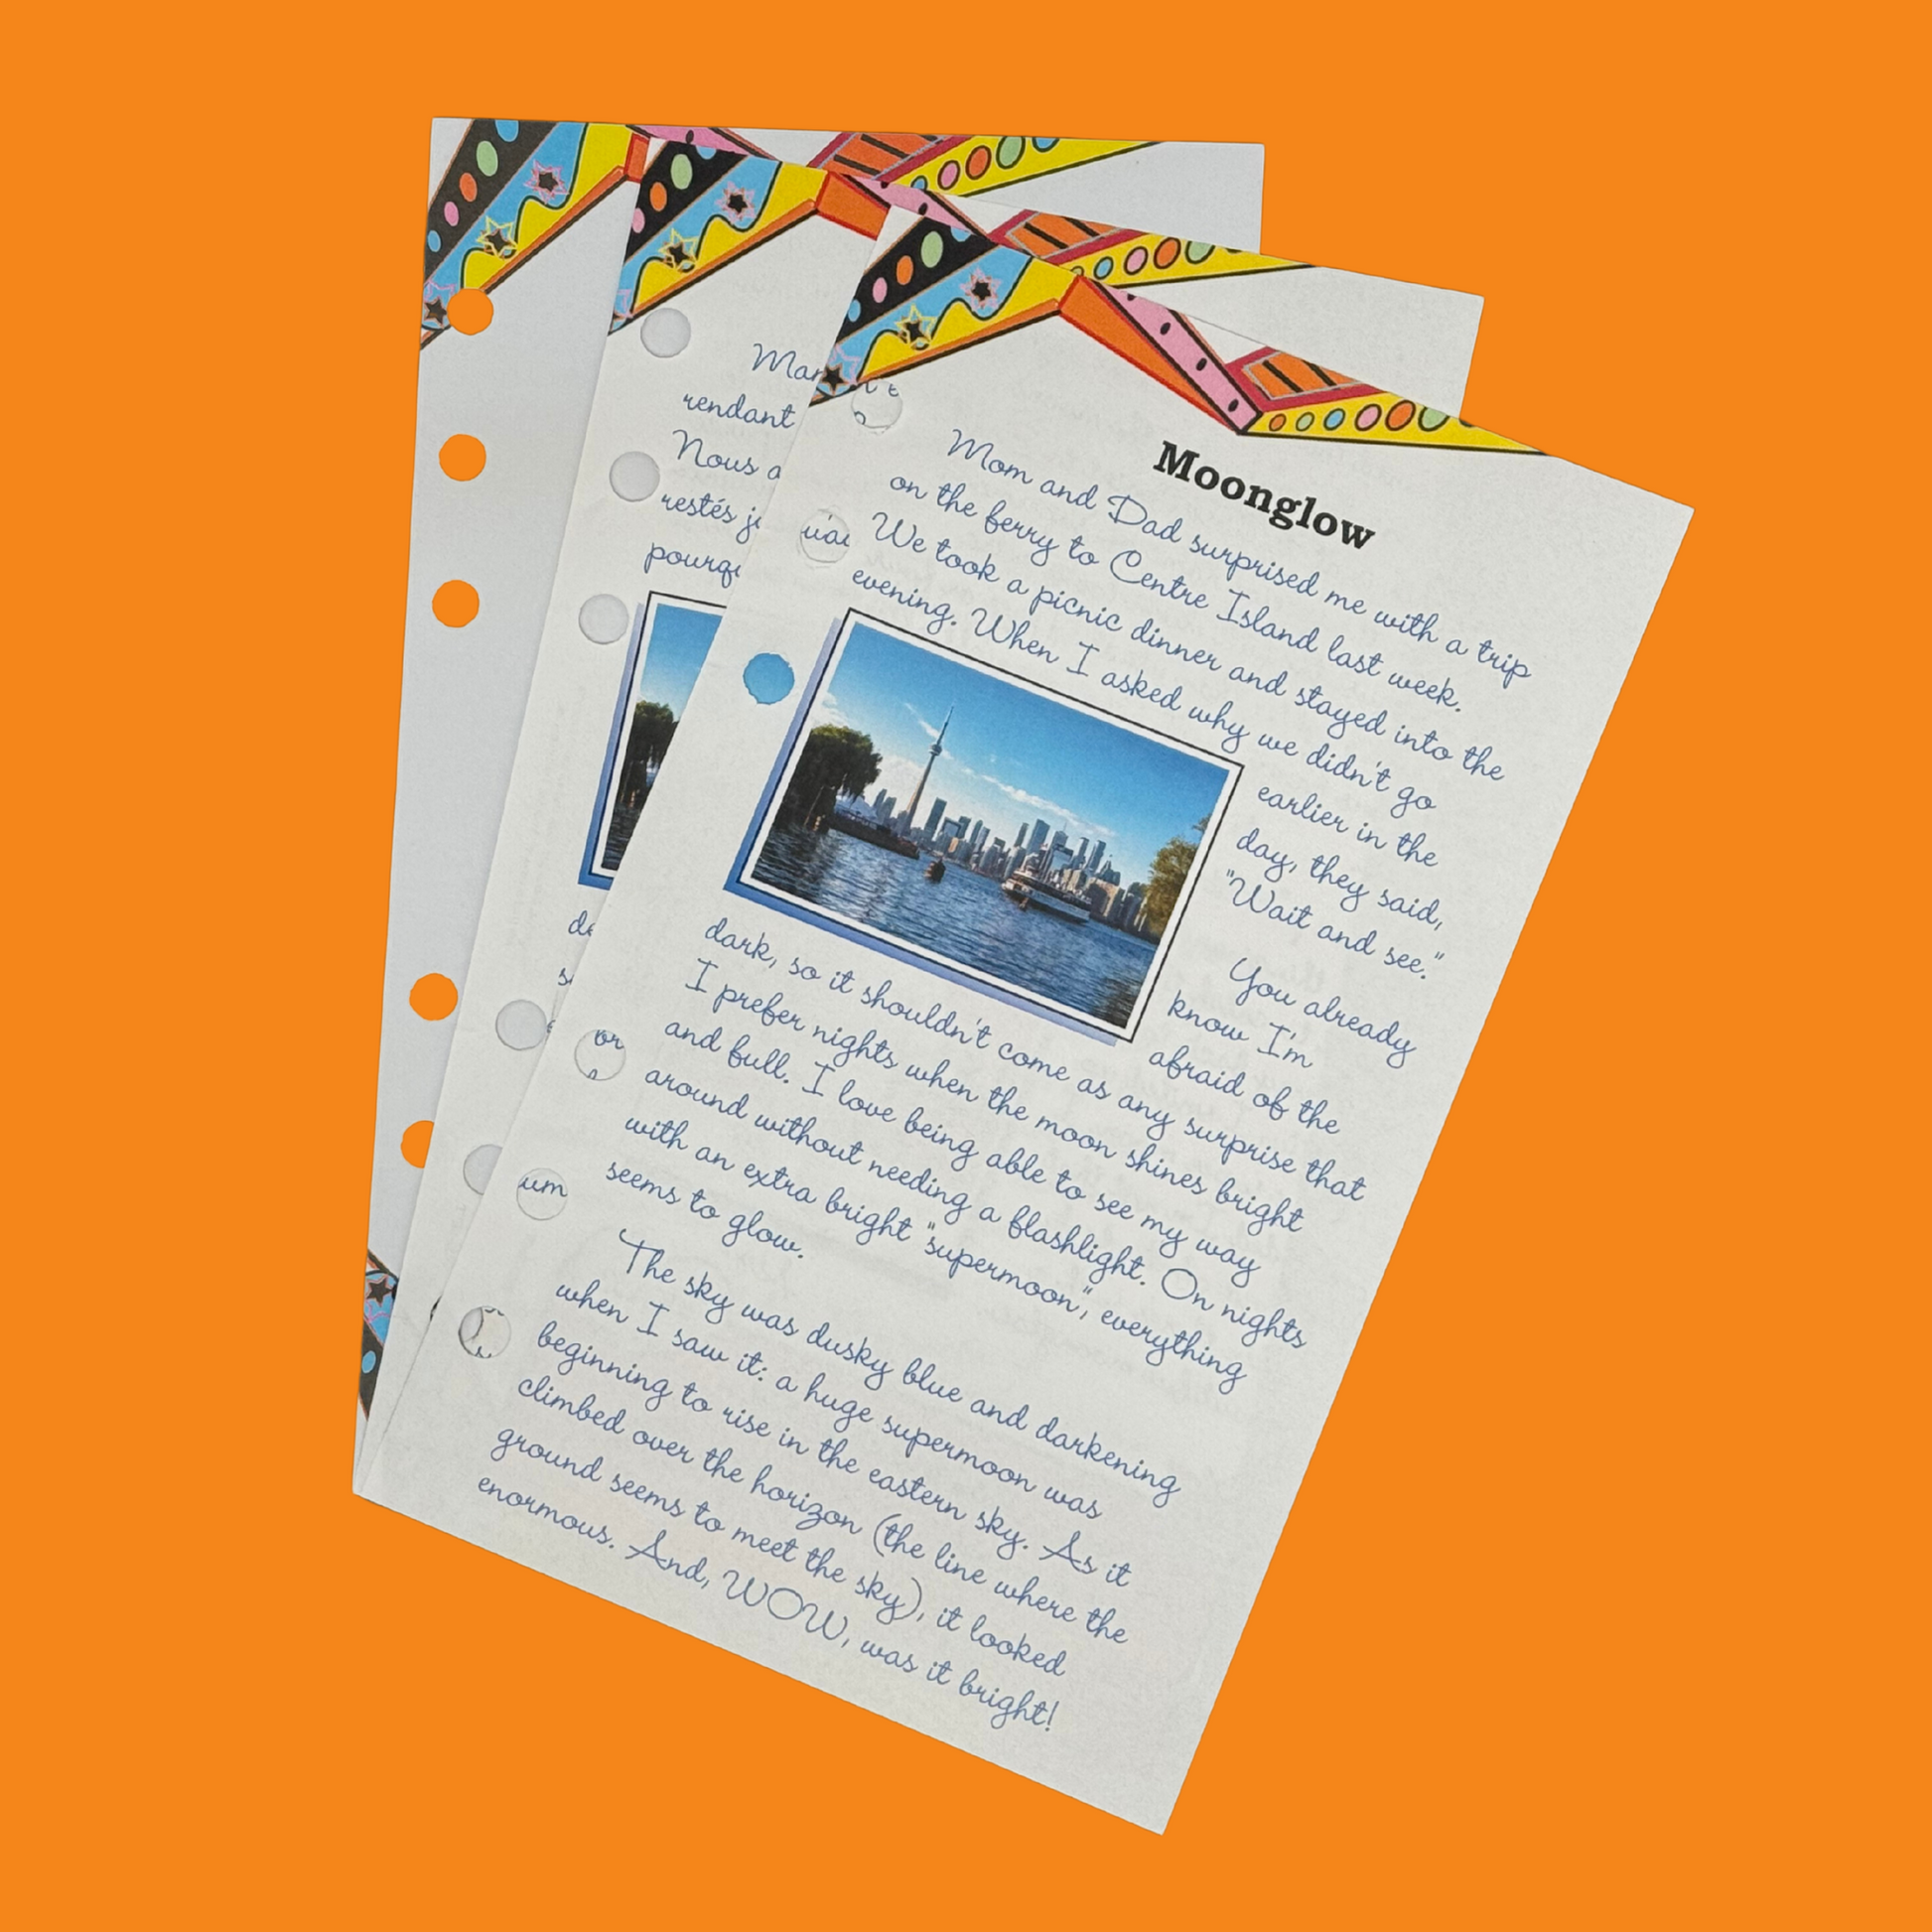 Moonglow
Mom and Dad surprised me with a trip
on the ferry to Centre Island last week.
We took a picnic dinner and stayed into the
evening. When I asked why we didn't go
earlier in the
day, they said,
"Wait and see."
You already
know I'm
afraid of the
dark, so it shouldn't come as any surprise that
I prefer nights when the moon shines bright
and full. I love being able to see my way
around without needing a flashlight. On nights
with an extra bright "supermoon", everything
seems to glow.
The sky was dusky blue and darkening
when I saw it: a huge supermoon was
beginning to rise in the eastern sky. As it
climbed over the horizon (the line where the
ground seems to meet the sky), it looked
enormous. And, WOW, was it bright!
rendant
Nous
restés